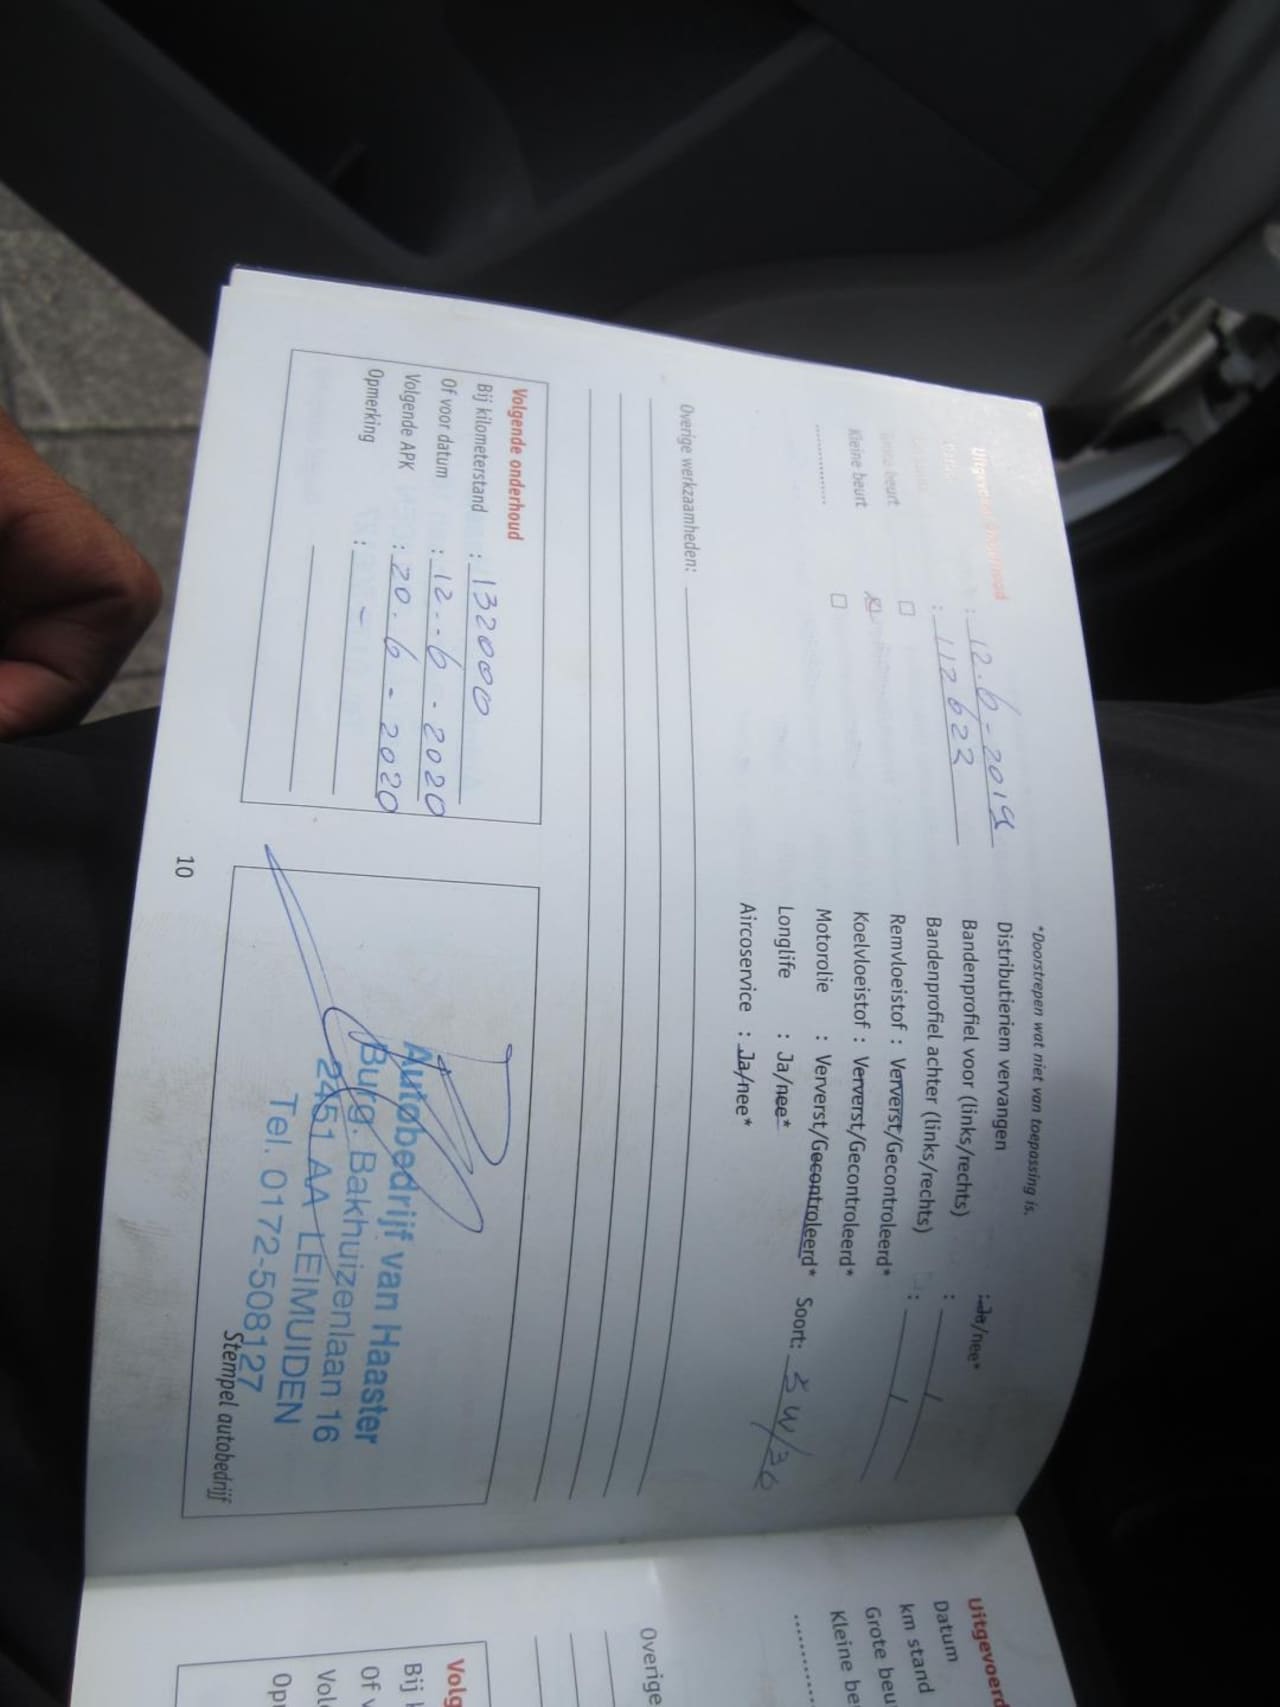 *Doorstrepen wat niet van toepassing is.
Uitgevoerd onderhoud
: 12-6-2019
: 112622
Grote beurt ☐
Kleine beurt ☒
.............. ☐
Distributieriem vervangen : Ja/nee*
Bandenprofiel voor (links/rechts) : /
Bandenprofiel achter (links/rechts) : /
Remvloeistof : Ververst/Gecontroleerd*
Koelvloeistof : Ververst/Gecontroleerd*
Motorolie : Ververst/Gecontroleerd* Soort: 5W/30
Longlife : Ja/nee*
Aircoservice : Ja/nee*
Overige werkzaamheden:
Volgende onderhoud
Bij kilometerstand : 132000
Of voor datum : 12-6-2020
Volgende APK : 20-6-2020
Opmerking : -
Autobedrijf van Haaster
Burg. Bakhuizenlaan 16
2451 AA LEIMUIDEN
Tel. 0172-508127
Stempel autobedrijf
10
Uitgevoerd
Datum
km stand
Grote beu
Kleine be
..............
Overige
Volg
Bij k
Of v
Vol
Op